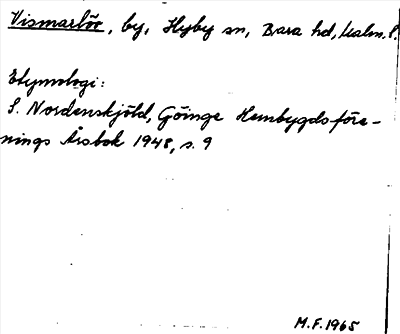 Vismarlöv, by, Hyby sn, Bara hd, Malm. l.
Etymologi:
S. Nordenskjöld, Göinge Hembygdsföre-
nings Årsbok 1948, s. 9
M.F. 1965